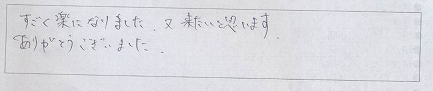 すごく楽になりました. 又来たいと思います.
ありがとうございました.